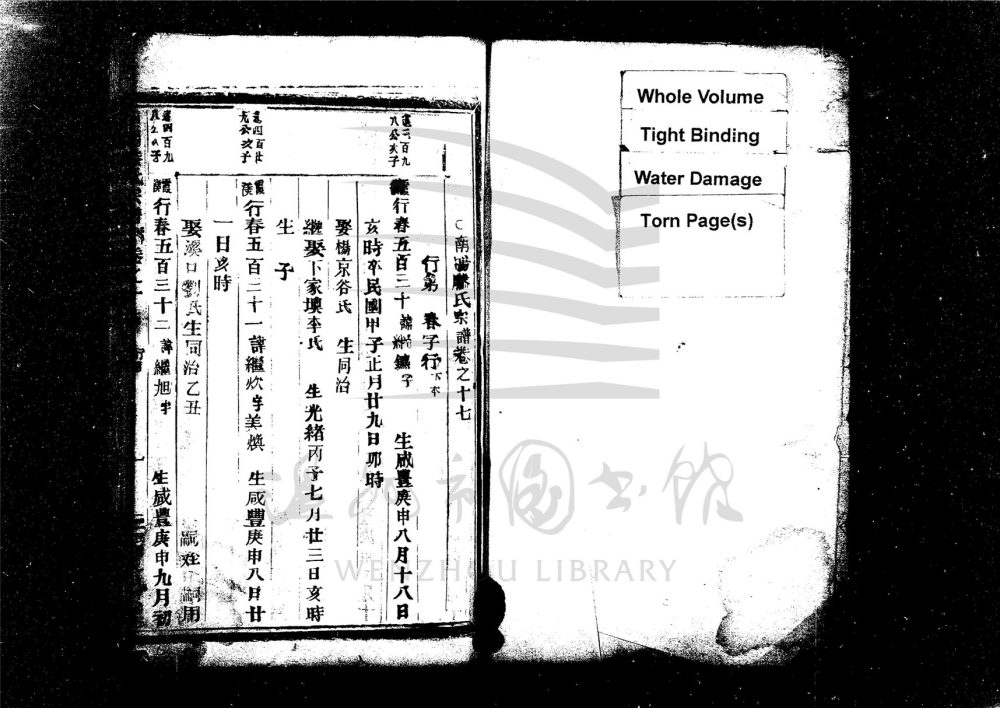 Whole Volume
Tight Binding
Water Damage
Torn Page(s)
氏宗譜卷之十七
行第 春字行
八公次子
行春五百三十 子 生咸豐庚申八月十八日
亥時卒民國甲子正月廿九日卯時
娶楊京谷氏 生同治
繼娶下家墺李氏 生光緒丙子七月廿三日亥時
生 子
遠四百廿
公次子
行春五百三十一諱繼炊字美煥 生咸豐庚申八月廿
一日亥時
娶溪口劉氏生同治乙丑
遠四百九
行春五百三十二諱繼旭字 生咸豐庚申九月初
WENZHOU LIBRARY